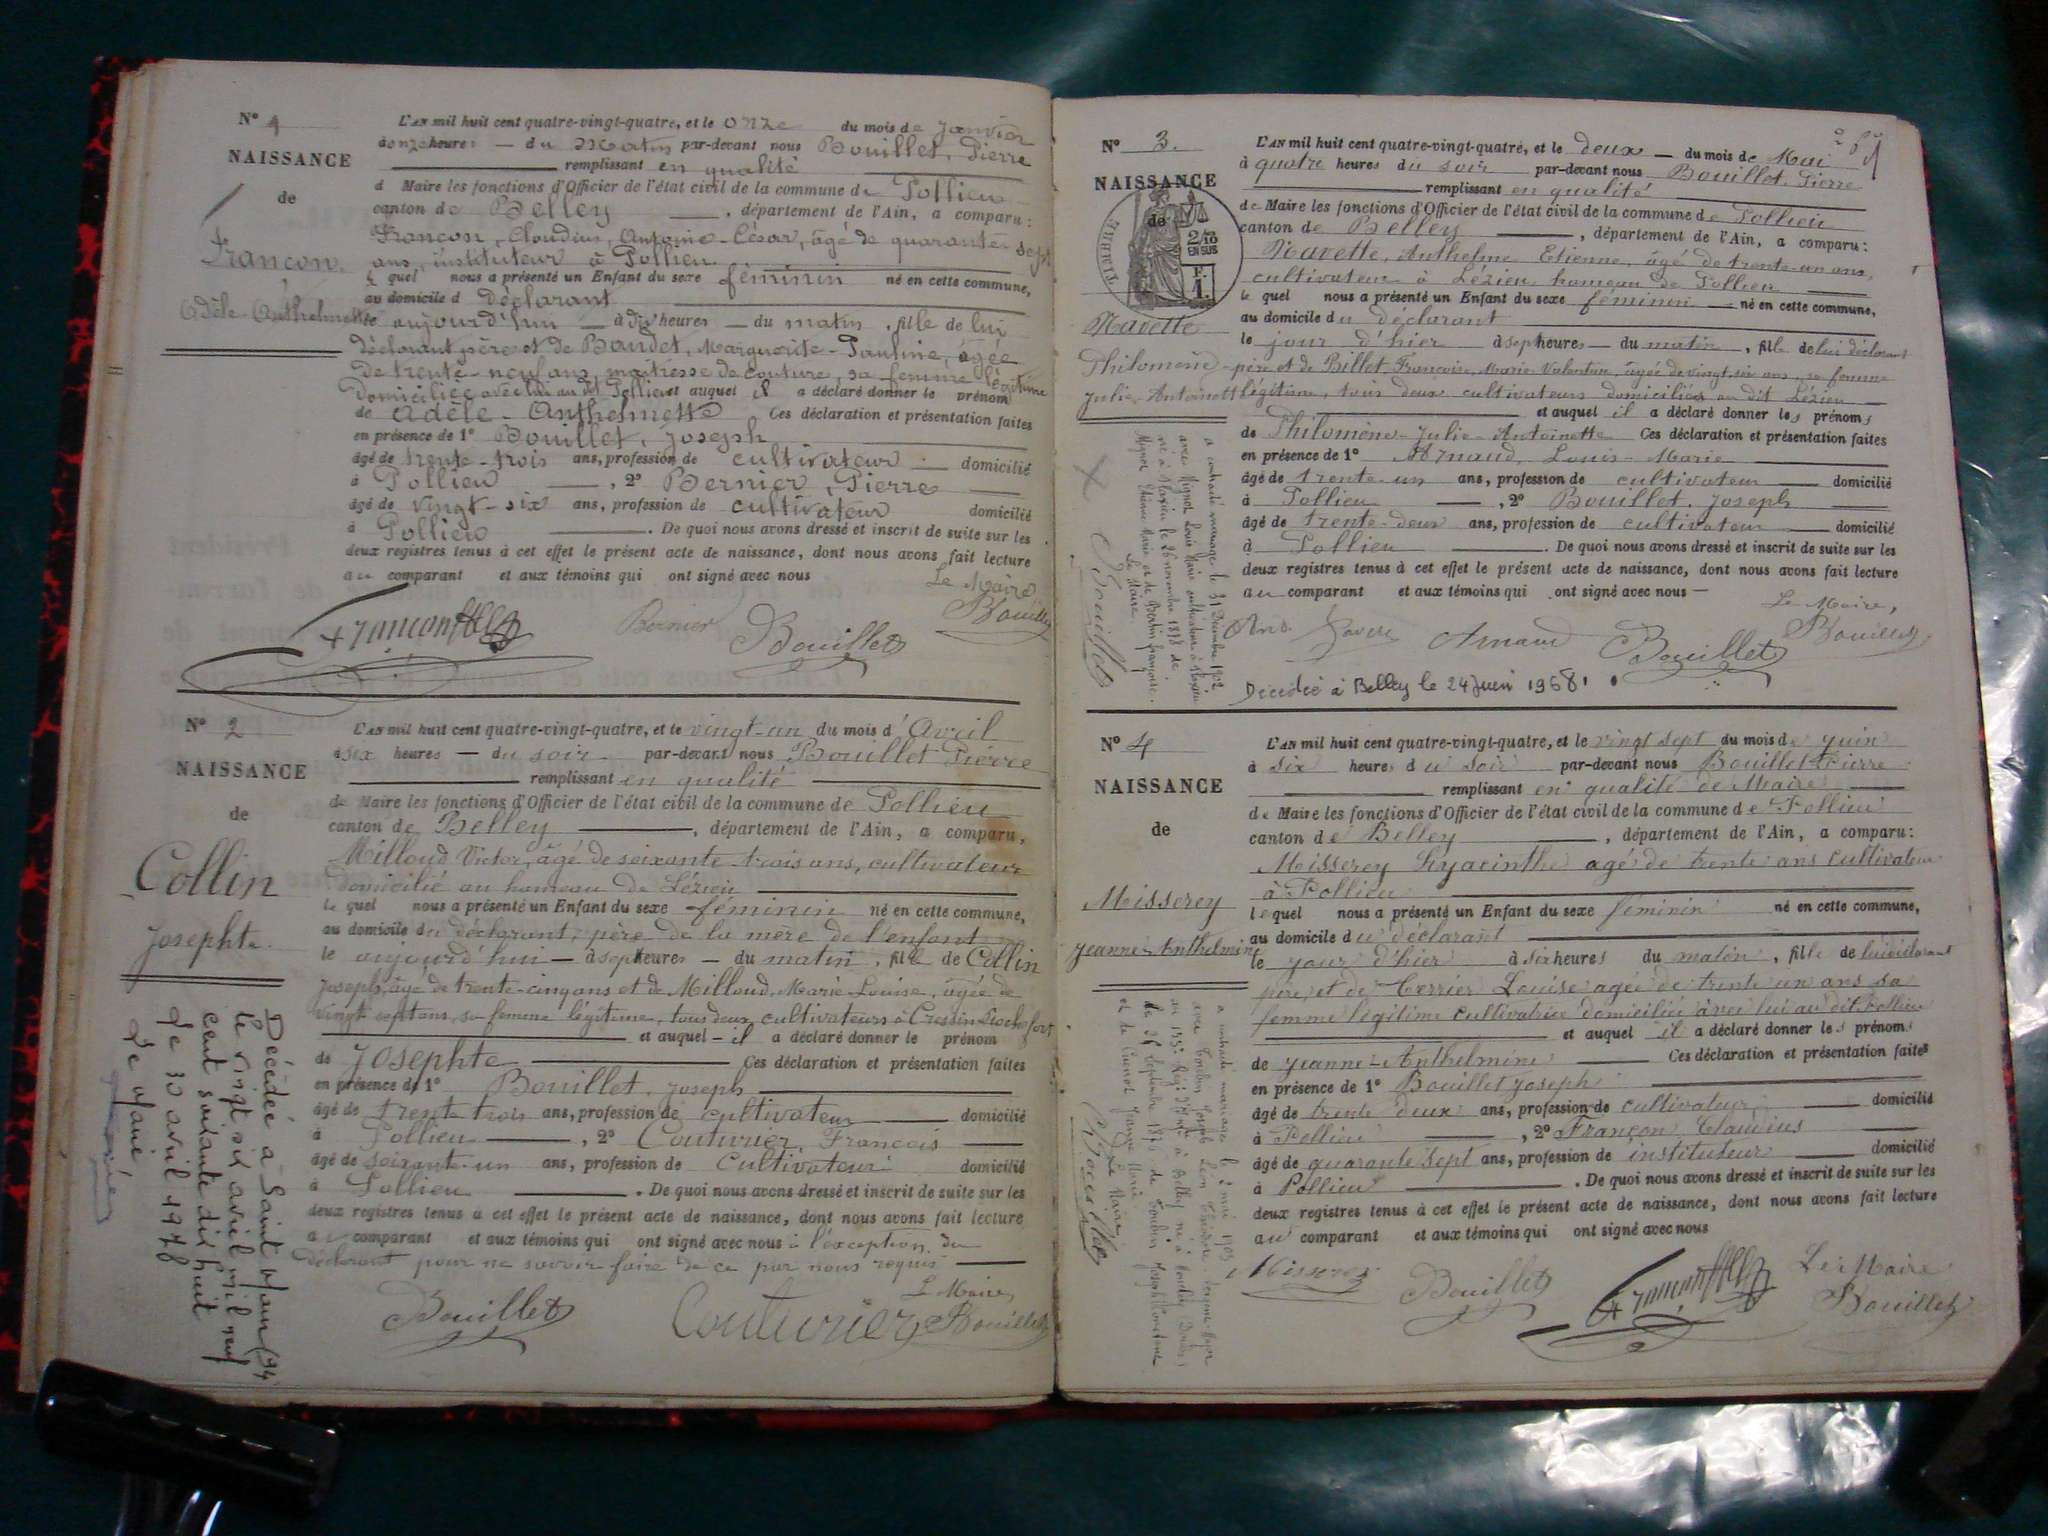 N° 1
NAISSANCE
de
Françon
Adèle-Anthelmette
L'AN mil huit cent quatre-vingt-quatre, et le onze du mois de Janvier
à onze heures du matin par-devant nous Bouillet, Pierre
remplissant en qualité
d Maire les fonctions d'Officier de l'état civil de la commune de Pollieu
canton de Belley, département de l'Ain, a comparu:
Françon, Claudius, Antoine-César, âgé de quarante-sept
ans, instituteur à Pollieu
le quel nous a présenté un Enfant du sexe féminin né en cette commune,
au domicile d déclarant
le aujourd'hui à dix heures du matin, fille de lui
déclarant père et de Bourdet, Marguerite-Pauline, âgée
de trente-neuf ans, maîtresse de couture, sa femme légitime
domiciliée avec lui au dit Pollieu et auquel il a déclaré donner le prénom
de Adèle-Anthelmette Ces déclaration et présentation faites
en présence de 1° Bouillet, Joseph
âgé de trente-trois ans, profession de cultivateur domicilié
à Pollieu, 2° Bernier, Pierre
âgé de vingt-six ans, profession de cultivateur domicilié
à Pollieu. De quoi nous avons dressé et inscrit de suite sur les
deux registres tenus à cet effet le présent acte de naissance, dont nous avons fait lecture
au comparant et aux témoins qui ont signé avec nous
Le Maire
Françon Bernier Bouillet Bouillet
N° 2
NAISSANCE
de
Collin
Josephte
L'AN mil huit cent quatre-vingt-quatre, et le vingt-un du mois d'Avril
à six heures du soir par-devant nous Bouillet Pierre
remplissant en qualité
de Maire les fonctions d'Officier de l'état civil de la commune de Pollieu
canton de Belley, département de l'Ain, a comparu,
Milloud Victor, âgé de soixante-trois ans, cultivateur
domicilié au hameau de Lézieu
le quel nous a présenté un Enfant du sexe féminin né en cette commune,
au domicile du déclarant, père de la mère de l'enfant
le aujourd'hui à sept heures du matin, fille de Collin
Joseph, âgé de trente-cinq ans et de Milloud, Marie Louise, âgée de
vingt sept ans, sa femme légitime, tous deux cultivateurs à Cressin-Rochefort,
et auquel il a déclaré donner le prénom
de Josephte Ces déclaration et présentation faites
en présence de 1° Bouillet, Joseph
âgé de trente trois ans, profession de cultivateur domicilié
à Pollieu, 2° Couturier, François
âgé de soixante-un ans, profession de cultivateur domicilié
à Pollieu. De quoi nous avons dressé et inscrit de suite sur les
deux registres tenus à cet effet le présent acte de naissance, dont nous avons fait lecture
au comparant et aux témoins qui ont signé avec nous à l'exception du
déclarant pour ne savoir faire de ce par nous requis
Le Maire
Bouillet Couturier Bouillet
Décédée à Saint Maur (94
le vingt six avril mil neuf
cent soixante dix huit
Le 30 avril 1978
Le Maire,
N° 3.
NAISSANCE
de
2/10
EN SUS
F.
1.
Navette
Philomène-
Julie-Antoinette
L'AN mil huit cent quatre-vingt-quatre, et le deux du mois de Mai
à quatre heures du soir par-devant nous Bouillet, Pierre
remplissant en qualité
de Maire les fonctions d'Officier de l'état civil de la commune de Pollieu
canton de Belley, département de l'Ain, a comparu:
Navette, Anthelme Etienne, âgé de trente-un ans,
cultivateur à Lézieu hameau de Pollieu
le quel nous a présenté un Enfant du sexe féminin né en cette commune,
au domicile du déclarant
le jour d'hier à sept heures du matin, fille de lui déclarant
père et de Billet, Françoise, Marie Valentine, âgée de vingt six ans, sa femme
légitime, tous deux cultivateurs domiciliés au dit Lézieu
et auquel il a déclaré donner les prénoms
de Philomène-Julie-Antoinette Ces déclaration et présentation faites
en présence de 1° Arnaud, Louis-Marie
âgé de trente-un ans, profession de cultivateur domicilié
à Pollieu, 2° Bouillet, Joseph
âgé de trente-deux ans, profession de cultivateur domicilié
à Pollieu. De quoi nous avons dressé et inscrit de suite sur les
deux registres tenus à cet effet le présent acte de naissance, dont nous avons fait lecture
au comparant et aux témoins qui ont signé avec nous
Le Maire,
Arnaud Bouillet Bouillet
Décédée à Belley le 24 Juin 1968
a contracté mariage le 31 Décembre 1902
avec Mignot Louis Marie cultivateur à
né à le 26 novembre 1878 de
Mignot Marie et de Françoise.
Le Maire
Bouillet
N° 4
NAISSANCE
de
Meisserey
Jeanne-Anthelmine
L'AN mil huit cent quatre-vingt-quatre, et le vingt sept du mois de juin
à six heures du soir par-devant nous Bouillet Pierre
remplissant en qualité de Maire
de Maire les fonctions d'Officier de l'état civil de la commune de Pollieu
canton de Belley, département de l'Ain, a comparu:
Meisserey Hyacinthe agé de trente ans cultivateur
à Pollieu
le quel nous a présenté un Enfant du sexe féminin né en cette commune,
au domicile du déclarant
le jour d'hier à six heures du matin, fille de lui déclarant
père, et de Terrier Louise agée de trente un ans sa
femme légitime cultivatrice domiciliée avec lui au dit Pollieu
et auquel il a déclaré donner les prénoms
de Jeanne-Anthelmine Ces déclaration et présentation faites
en présence de 1° Bouillet Joseph
âgé de trente deux ans, profession de cultivateur domicilié
à Pollieu, 2° Françon Claudius
âgé de quarante sept ans, profession de instituteur domicilié
à Pollieu. De quoi nous avons dressé et inscrit de suite sur les
deux registres tenus à cet effet le présent acte de naissance, dont nous avons fait lecture
au comparant et aux témoins qui ont signé avec nous
Le Maire
Misserey Bouillet Françon Bouillet
a contracté mariage le 2 mai 1903
avec Joseph Léon Théodore Sergent-Major
au 133e Rég. d'Inf. à Belley né à (Doubs)
le Septembre 187 de Joseph Constant
et de Jeanne Marie
Le Maire
Bouillet